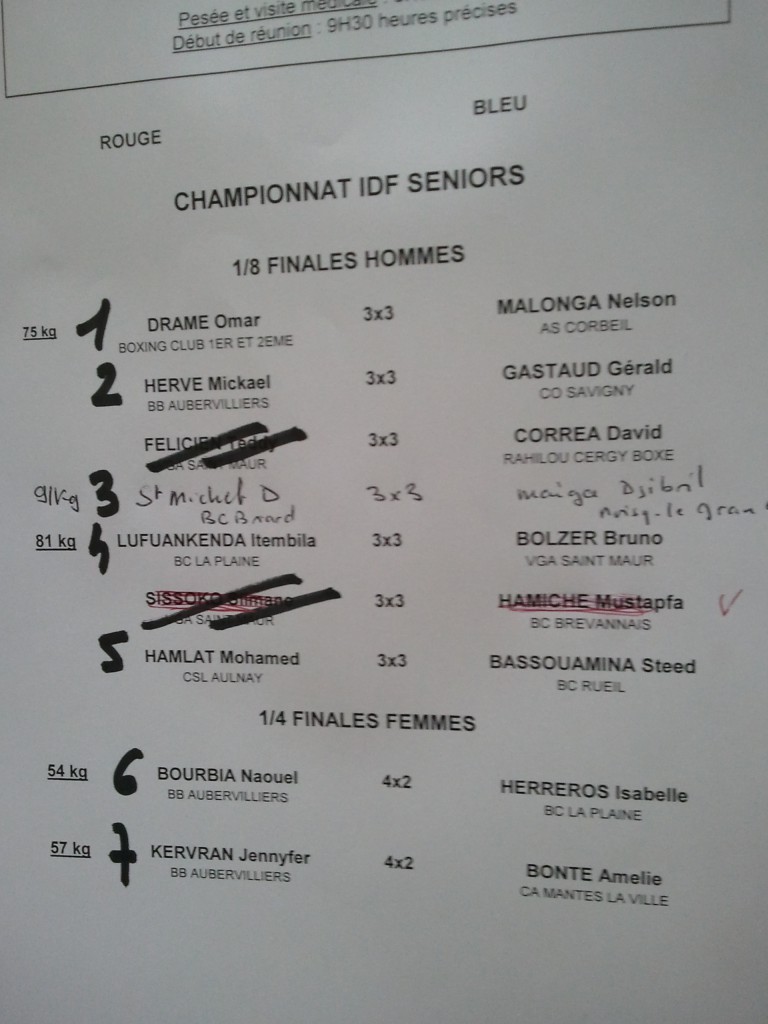 Pesée et visite médicale :
Début de réunion : 9H30 heures précises
ROUGE BLEU
CHAMPIONNAT IDF SENIORS
1/8 FINALES HOMMES
75 kg 1 DRAME Omar 3x3 MALONGA Nelson
BOXING CLUB 1ER ET 2EME AS CORBEIL
2 HERVE Mickael 3x3 GASTAUD Gérald
BB AUBERVILLIERS CO SAVIGNY
FELICIEN Teddy 3x3 CORREA David
VGA SAINT MAUR RAHILOU CERGY BOXE
91kg 3 St Michel D 3x3 maiga Djibril
BC Brard noisy-le gran
81 kg 4 LUFUANKENDA Itembila 3x3 BOLZER Bruno
BC LA PLAINE VGA SAINT MAUR
SISSOKO Slimane 3x3 HAMICHE Mustapfa
VGA SAINT MAUR BC BREVANNAIS
5 HAMLAT Mohamed 3x3 BASSOUAMINA Steed
CSL AULNAY BC RUEIL
1/4 FINALES FEMMES
54 kg 6 BOURBIA Naouel 4x2 HERREROS Isabelle
BB AUBERVILLIERS BC LA PLAINE
57 kg 7 KERVRAN Jennyfer 4x2 BONTE Amelie
BB AUBERVILLIERS CA MANTES LA VILLE